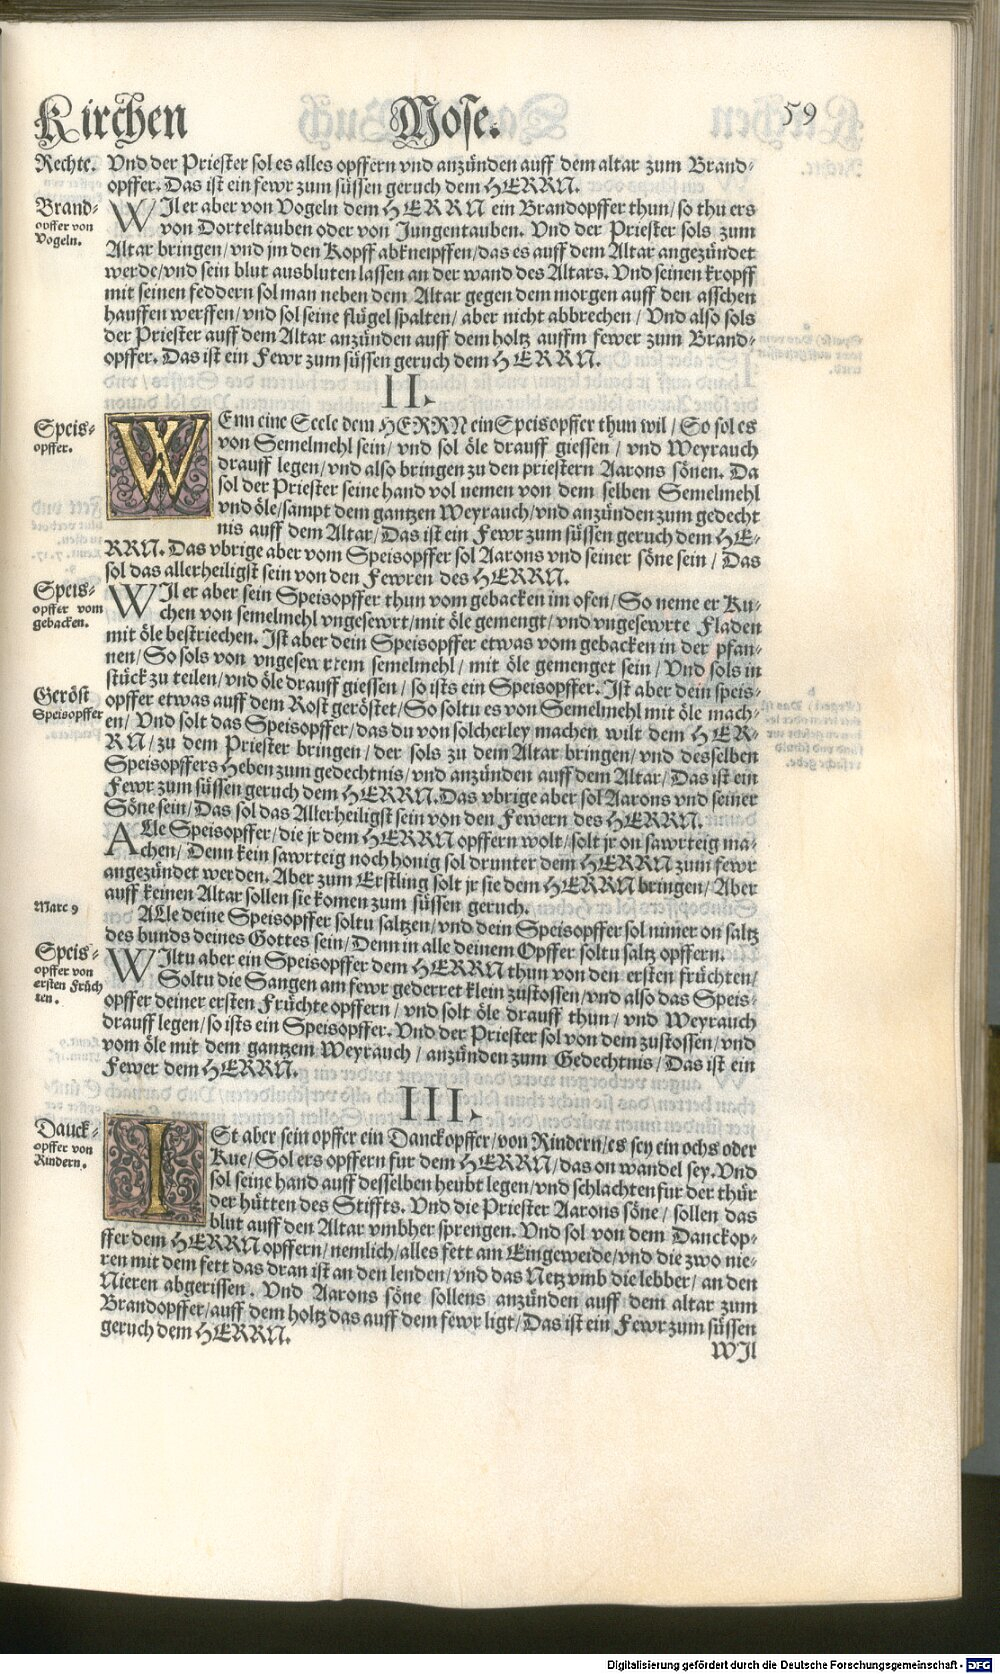 Kirchen Mose. 59
Rechte.
Vnd der Priester sol es alles opffern vnd anzünden auff dem altar zum Brand-
opffer. Das ist ein fewr zum süssen geruch dem HERRN.
Brand-
opffer von
Vogeln.
WJl er aber von Vogeln dem HERRN ein Brandopffer thun/ so thu ers
von Dorteltauben oder von Jungentauben. Vnd der Priester sols zum
Altar bringen/ vnd jm den Kopff abkneipffen/ das es auff dem Altar angezündet
werde/ vnd sein blut ausbluten lassen an der wand des Altars. Vnd seinen kropff
mit seinen feddern sol man neben dem Altar gegen dem morgen auff den asschen
hauffen werffen/ vnd sol seine flügel spalten/ aber nicht abbrechen/ Vnd also sols
der Priester auff dem Altar anzünden auff dem holtz auffm fewer zum Brand-
opffer. Das ist ein Fewr zum süssen geruch dem HERRN.
II.
Speis-
opffer.
WEnn eine Seele dem HERRN ein Speisopffer thun wil/ So sol es
von Semelmehl sein/ vnd sol öle drauff giessen/ vnd Weyrauch
drauff legen/ vnd also bringen zu den priestern Aarons sönen. Da
sol der Priester seine hand vol nemen von dem selben Semelmehl
vnd öle/ sampt dem gantzen Weyrauch/ vnd anzünden zum gedecht
nis auff dem Altar/ Das ist ein Fewr zum süssen geruch dem HE-
RRN. Das vbrige aber vom Speisopffer sol Aarons vnd seiner söne sein/ Das
sol das allerheiligst sein von den Fewren des HERRN.
Speis-
opffer vom
gebacken.
WJl er aber sein Speisopffer thun vom gebacken im ofen/ So neme er Ku-
chen von semelmehl vngesewrt/ mit öle gemengt/ vnd vngesewrte Fladen
mit öle bestriechen. Ist aber dein Speisopffer etwas vom gebacken in der pfan-
nen/ So sols von vngesewrtem semelmehl/ mit öle gemenget sein/ Vnd sols in
stück zu teilen/ vnd öle drauff giessen/ so ists ein Speisopffer. Ist aber dein speis-
Geröst
Speisopffer
opffer etwas auff dem Rost geröstet/ So soltu es von Semelmehl mit öle mach-
en/ Vnd solt das Speisopffer/ das du von solcherley machen wilt dem HER-
RN/ zu dem Priester bringen/ der sols zu dem Altar bringen/ vnd desselben
Speisopffers Heben zum gedechtnis/ vnd anzünden auff dem Altar/ Das ist ein
Fewr zum süssen geruch dem HERRN. Das vbrige aber sol Aarons vnd seiner
Söne sein/ Das sol das Allerheiligst sein von den Fewern des HERRN.
ALle Speisopffer/ die jr dem HERRN opffern wolt/ solt jr on sawrteig ma-
chen/ Denn kein sawrteig noch honig sol drunter dem HERRN zum fewr
angezündet werden. Aber zum Erstling solt jr sie dem HERRN bringen/ Aber
auff keinen Altar sollen sie komen zum süssen geruch.
Marc 9
ALle deine Speisopffer soltu saltzen/ vnd dein Speisopffer sol nimer on saltz
des bunds deines Gottes sein/ Denn in alle deinem Opffer soltu saltz opffern.
Speis-
opffer von
ersten Früch
ten.
WJltu aber ein Speisopffer dem HERRN thun von den ersten früchten/
Soltu die Sangen am fewr gederret klein zustossen/ vnd also das Speis-
opffer deiner ersten Früchte opffern/ vnd solt öle drauff thun/ vnd Weyrauch
drauff legen/ so ists ein Speisopffer. Vnd der Priester sol von dem zustossen/ vnd
vom öle mit dem gantzem Weyrauch/ anzünden zum Gedechtnis/ Das ist ein
Fewer dem HERRN.
III.
Danck-
opffer von
Rindern.
ISt aber sein opffer ein Danckopffer/ von Rindern/ es sey ein ochs oder
Kue/ Sol ers opffern fur dem HERRN/ das on wandel sey. Vnd
sol seine hand auff desselben heubt legen/ vnd schlachten fur der thür
der hütten des Stiffts. Vnd die Priester Aarons söne/ sollen das
blut auff den Altar vmbher sprengen. Vnd sol von dem Danckop-
ffer dem HERRN opffern/ nemlich/ alles fett am Eingeweide/ vnd die zwo nie-
ren mit dem fett das dran ist an den lenden/ vnd das Netz vmb die lebber/ an den
Nieren abgerissen. Vnd Aarons söne sollens anzünden auff dem altar zum
Brandopffer/ auff dem holtz das auff dem fewr ligt/ Das ist ein Fewr zum süssen
geruch dem HERRN.
WJl
Digitalisierung gefördert durch die Deutsche Forschungsgemeinschaft - DFG